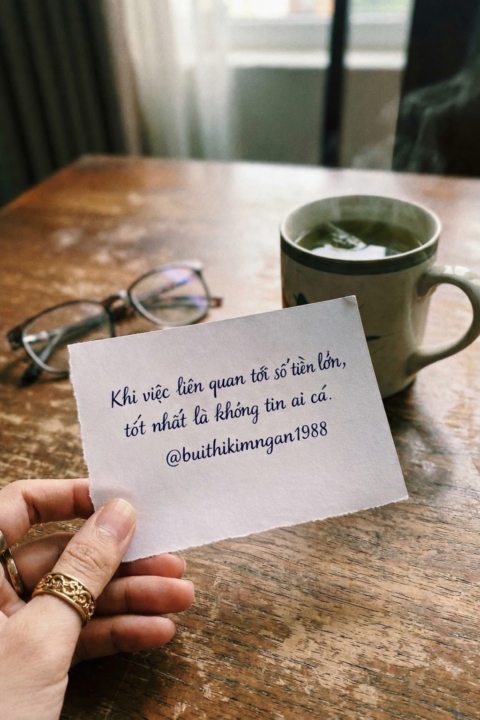 Khi việc liên quan tới số tiền lớn,
tốt nhất là không tin ai cá.
@buithikimngan1988